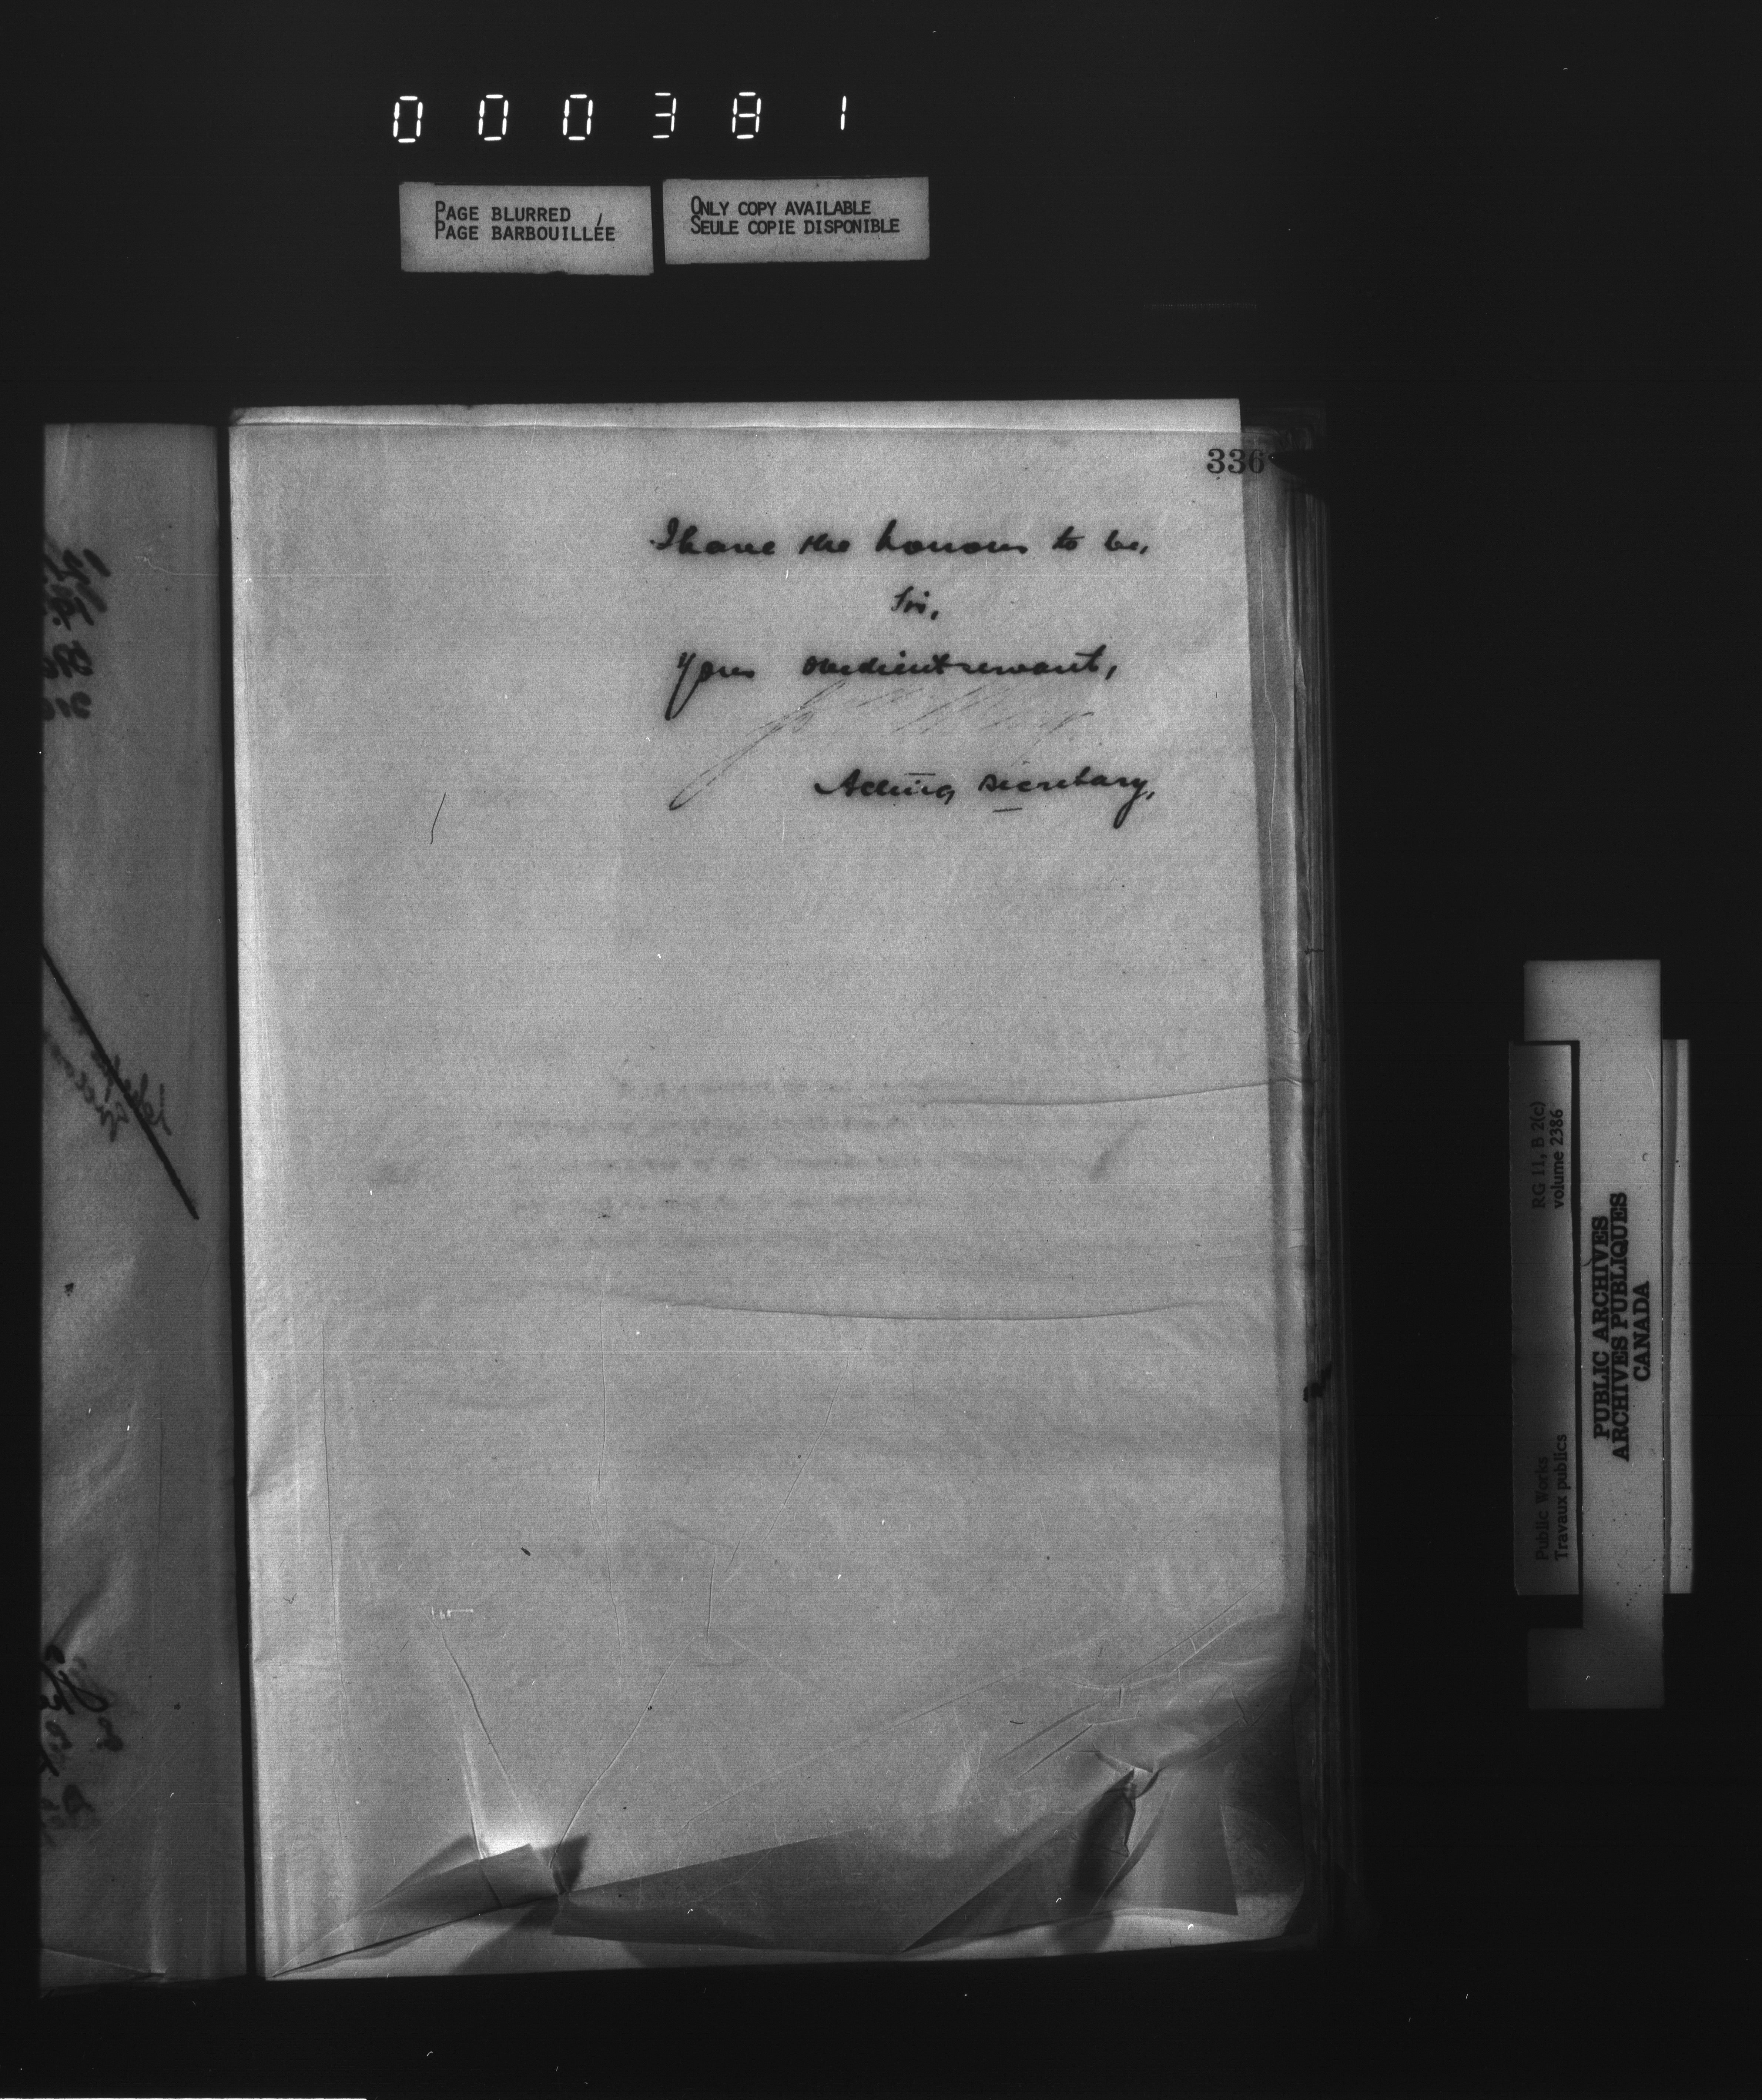 000381
PAGE BLURRED
PAGE BARBOUILLÉE
ONLY COPY AVAILABLE
SEULE COPIE DISPONIBLE
336
I have the honour to be,
Sir,
Your obedient servant,
Acting Secretary,
RG 11, B 2(c)
volume 2386
Public Works
Travaux publics
PUBLIC ARCHIVES
ARCHIVES PUBLIQUES
CANADA